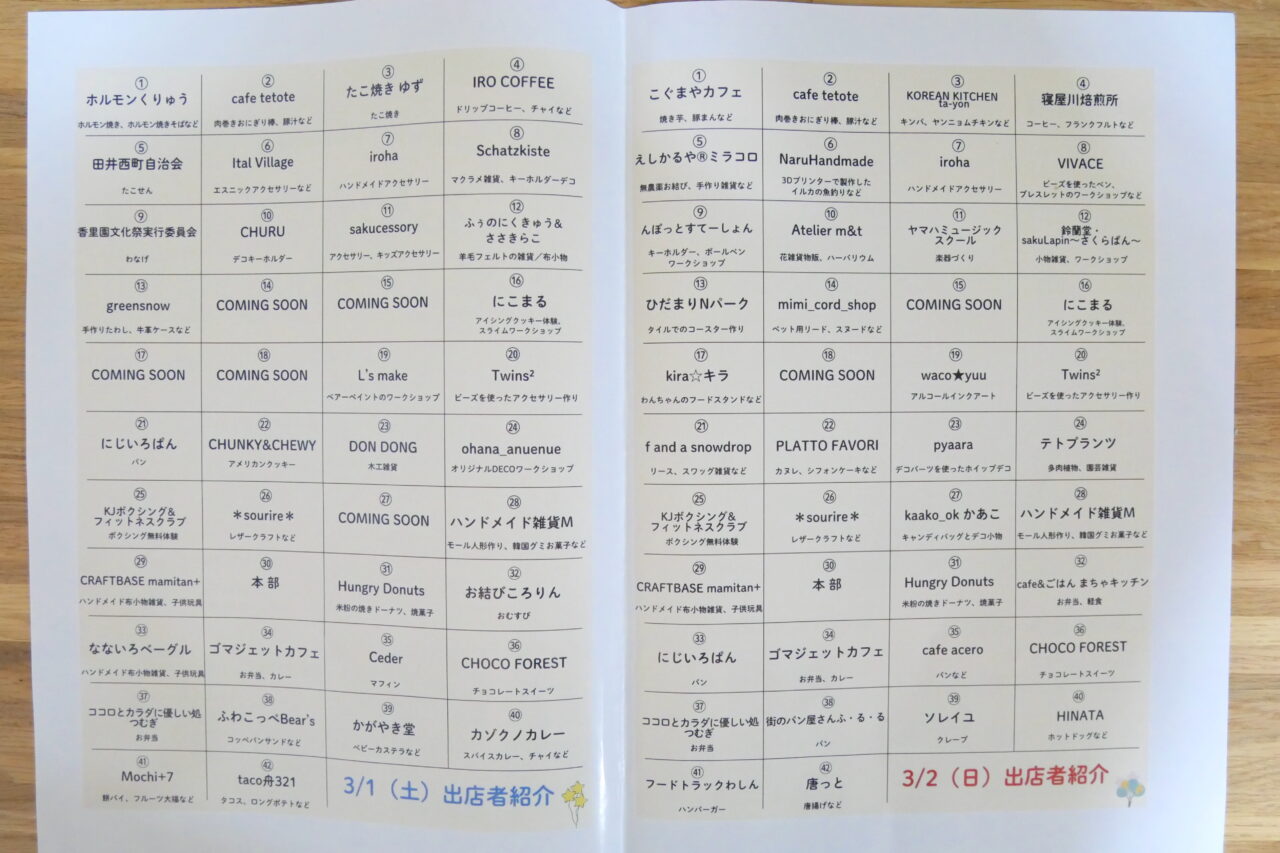 ①
ホルモンくりゅう
ホルモン焼き、ホルモン焼きそばなど
②
cafe tetote
肉巻きおにぎり棒、豚汁など
③
たこ焼き ゆず
たこ焼き
④
IRO COFFEE
ドリップコーヒー、チャイなど
⑤
田井西町自治会
たこせん
⑥
Ital Village
エスニックアクセサリーなど
⑦
iroha
ハンドメイドアクセサリー
⑧
Schatzkiste
マクラメ雑貨、キーホルダーデコ
⑨
香里園文化祭実行委員会
わなげ
⑩
CHURU
デコキーホルダー
⑪
sakucessory
アクセサリー、キッズアクセサリー
⑫
ふぅのにくきゅう&
ささきらこ
羊毛フェルトの雑貨／布小物
⑬
greensnow
手作りたわし、牛革ケースなど
⑭
COMING SOON
⑮
COMING SOON
⑯
にこまる
アイシングクッキー体験、
スライムワークショップ
⑰
COMING SOON
⑱
COMING SOON
⑲
L's make
ベアーペイントのワークショップ
⑳
Twins²
ビーズを使ったアクセサリー作り
㉑
にじいろぱん
パン
㉒
CHUNKY&CHEWY
アメリカンクッキー
㉓
DON DONG
木工雑貨
㉔
ohana_anuenue
オリジナルDECOワークショップ
㉕
KJボクシング&
フィットネスクラブ
ボクシング無料体験
㉖
＊sourire＊
レザークラフトなど
㉗
COMING SOON
㉘
ハンドメイド雑貨M
モール人形作り、韓国グミお菓子など
㉙
CRAFTBASE mamitan+
ハンドメイド布小物雑貨、子供玩具
㉚
本 部
㉛
Hungry Donuts
米粉の焼きドーナツ、焼菓子
㉜
お結びころりん
おむすび
㉝
なないろベーグル
ハンドメイド布小物雑貨、子供玩具
㉞
ゴマジェットカフェ
お弁当、カレー
㉟
Ceder
マフィン
㊱
CHOCO FOREST
チョコレートスイーツ
㊲
ココロとカラダに優しい処
つむぎ
お弁当
㊳
ふわこっぺBear's
コッペパンサンドなど
㊴
かがやき堂
ベビーカステラなど
㊵
カゾクノカレー
スパイスカレー、チャイなど
㊶
Mochi+7
餅パイ、フルーツ大福など
㊷
taco舟321
タコス、ロングポテトなど
3/1（土）出店者紹介
①
こぐまやカフェ
焼き芋、豚まんなど
②
cafe tetote
肉巻きおにぎり棒、豚汁など
③
KOREAN KITCHEN
ta-yon
キンパ、ヤンニョムチキンなど
④
寝屋川焙煎所
コーヒー、フランクフルトなど
⑤
えしかるや®ミラコロ
無農薬お結び、手作り雑貨など
⑥
NaruHandmade
3Dプリンターで製作した
イルカの魚釣りなど
⑦
iroha
ハンドメイドアクセサリー
⑧
VIVACE
ビーズを使ったペン、
ブレスレットのワークショップなど
⑨
んぽっとすてーしょん
キーホルダー、ボールペン
ワークショップ
⑩
Atelier m&t
花雑貨物販、ハーバリウム
⑪
ヤマハミュージック
スクール
楽器づくり
⑫
鈴蘭堂・
sakuLapin〜さくらぱん〜
小物雑貨、ワークショップ
⑬
ひだまりNパーク
タイルでのコースター作り
⑭
mimi_cord_shop
ペット用リード、スヌードなど
⑮
COMING SOON
⑯
にこまる
アイシングクッキー体験、
スライムワークショップ
⑰
kira☆キラ
わんちゃんのフードスタンドなど
⑱
COMING SOON
⑲
waco★yuu
アルコールインクアート
⑳
Twins²
ビーズを使ったアクセサリー作り
㉑
f and a snowdrop
リース、スワッグ雑貨など
㉒
PLATTO FAVORI
カヌレ、シフォンケーキなど
㉓
pyaara
デコパーツを使ったホイップデコ
㉔
テトプランツ
多肉植物、園芸雑貨
㉕
KJボクシング&
フィットネスクラブ
ボクシング無料体験
㉖
＊sourire＊
レザークラフトなど
㉗
kaako_ok かあこ
キャンディバッグとデコ小物
㉘
ハンドメイド雑貨M
モール人形作り、韓国グミお菓子など
㉙
CRAFTBASE mamitan+
ハンドメイド布小物雑貨、子供玩具
㉚
本 部
㉛
Hungry Donuts
米粉の焼きドーナツ、焼菓子
㉜
cafe&ごはん まちゃキッチン
お弁当、軽食
㉝
にじいろぱん
パン
㉞
ゴマジェットカフェ
お弁当、カレー
㉟
cafe acero
パンなど
㊱
CHOCO FOREST
チョコレートスイーツ
㊲
ココロとカラダに優しい処
つむぎ
お弁当
㊳
街のパン屋さんふ・る・る
パン
㊴
ソレイユ
クレープ
㊵
HINATA
ホットドッグなど
㊶
フードトラックわしん
ハンバーガー
㊷
唐っと
唐揚げなど
3/2（日）出店者紹介